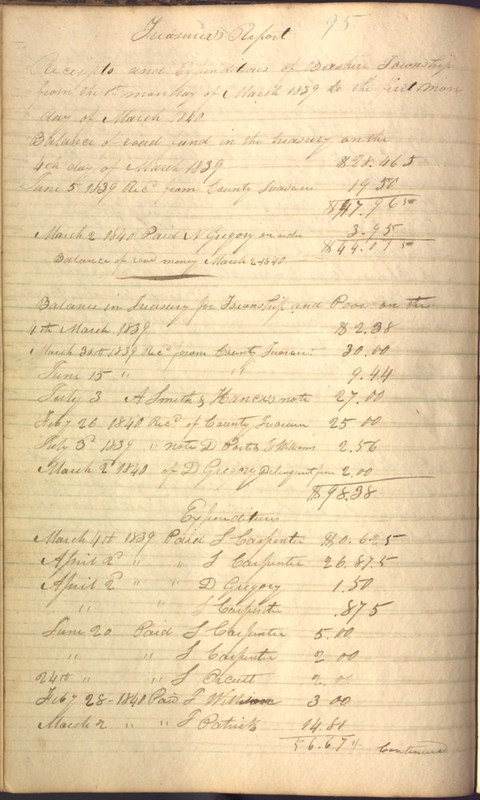 Treasurers Report 95
Receipts and Expenditures of Berkshire Township
from the 1st monday of March 1839 to the first mon
day of March 1840
Ballance of road fund in the treasury on the
4th day of March 1839 $28.465
June 5 1839 Recd from County Treasurer 19 50
$47.965
March 2 1840 Paid N Gregory on order 3.95
$44.015
Balance of road money March 2 1840
Balance in Treasury for Township and Poor on the
4th March 1839 $2.38
March 30th 1839 Recd from County Treasurer 30.00
June 15 " " 9.44
July 3 A Smith & note 27.00
Feby 26 1840 Recd of County Treasurer 25 00
July 3d 1839 " note D & Williams 2.56
March 2d 1840 of D Gregory Delinquent fine 2.00
$98.38
Expenditures
March 4th 1839 Paid S Carpenter $0.625
April 2d " " S Carpenter 26.875
April 2d " " D Gregory 1.50
" " S Carpenter .875
June 20 Paid S Carpenter 5.00
" " S Carpenter 2 00
24th " " S 2.00
Feby 28-1840 Paid 3 00
March 2 " " T Patrick 14.81
56.67 Continued